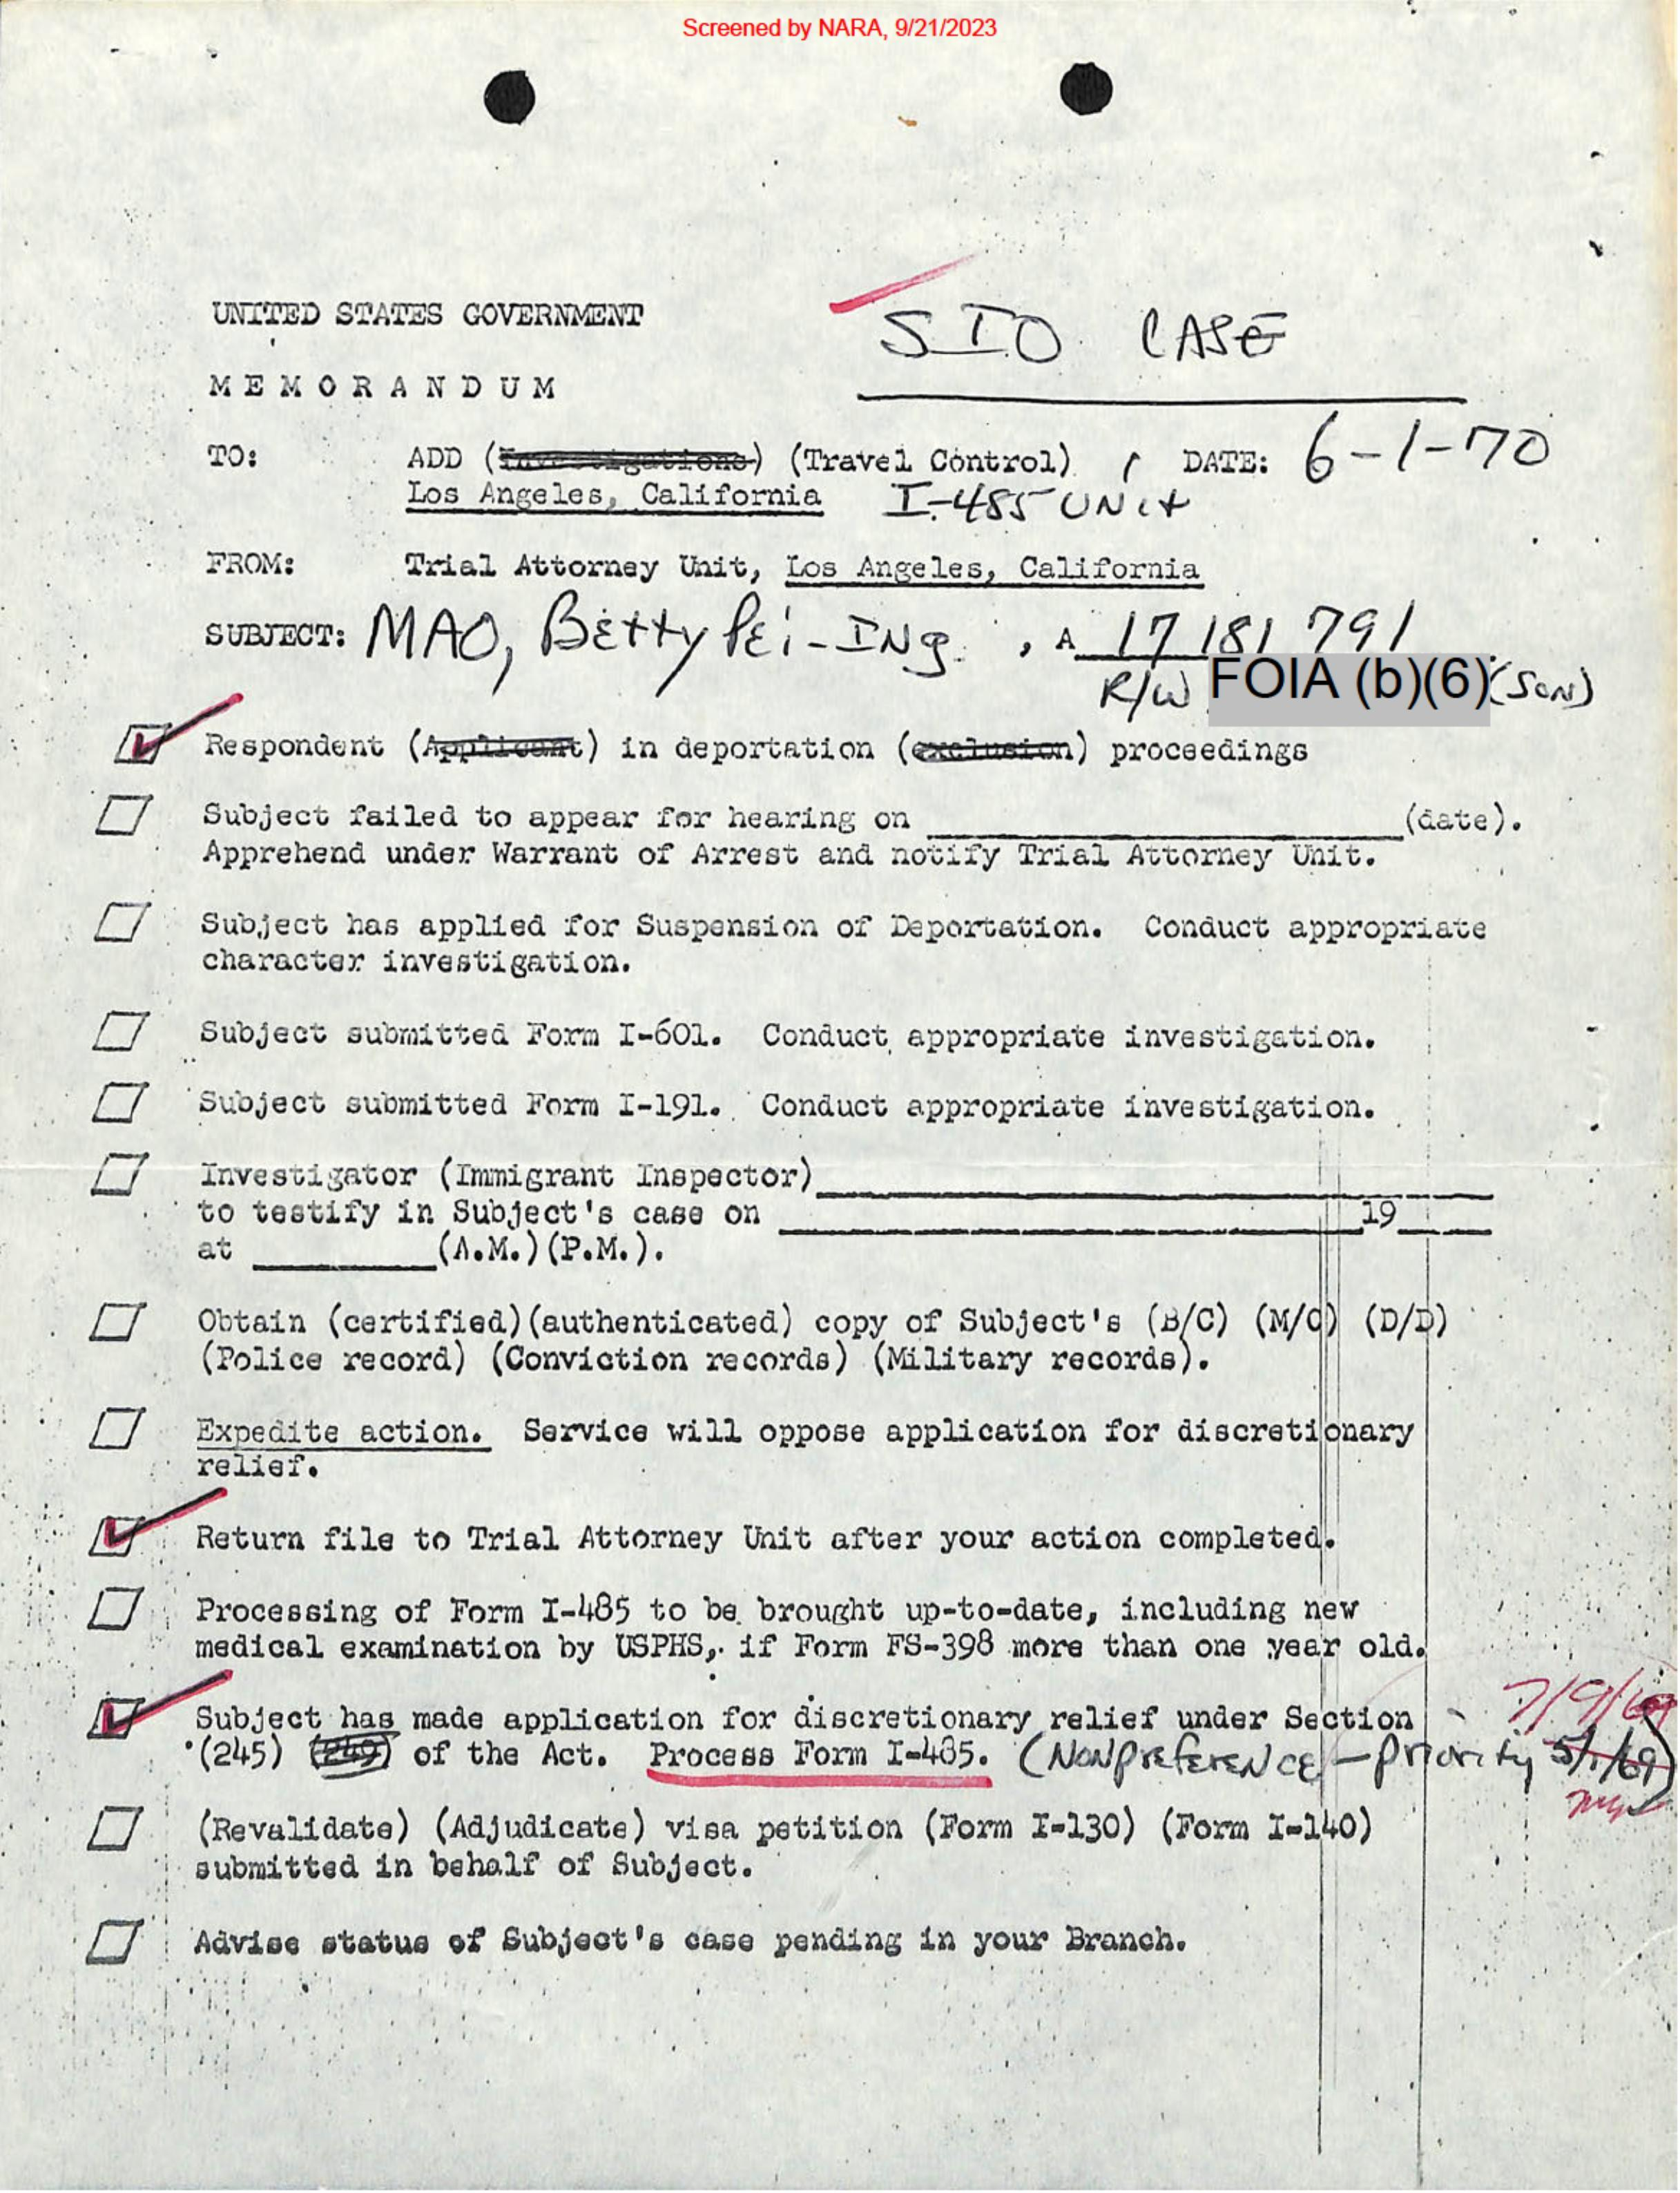 Screened by NARA, 9/21/2023
SIO CASE
UNITED STATES GOVERNMENT
MEMORANDUM
TO: ADD (Investigations) (Travel Control) DATE: 6-1-70
Los Angeles, California I-485 UNit
FROM: Trial Attorney Unit, Los Angeles, California
SUBJECT: MAO, Betty Pei-INg. , A 17 181 791
R/W FOIA (b)(6) (SON)
Respondent (Applicant) in deportation (exclusion) proceedings
Subject failed to appear for hearing on (date).
Apprehend under Warrant of Arrest and notify Trial Attorney Unit.
Subject has applied for Suspension of Deportation. Conduct appropriate
character investigation.
Subject submitted Form I-601. Conduct appropriate investigation.
Subject submitted Form I-191. Conduct appropriate investigation.
Investigator (Immigrant Inspector)
to testify in Subject's case on 19
at (A.M.)(P.M.).
Obtain (certified)(authenticated) copy of Subject's (B/C) (M/C) (D/D)
(Police record) (Conviction records) (Military records).
Expedite action. Service will oppose application for discretionary
relief.
Return file to Trial Attorney Unit after your action completed.
Processing of Form I-485 to be brought up-to-date, including new
medical examination by USPHS, if Form FS-398 more than one year old.
7/9/69
Subject has made application for discretionary relief under Section
(245) (249) of the Act. Process Form I-485. (NONPREFERENCE - Priority 5/1/69)
(Revalidate) (Adjudicate) visa petition (Form I-130) (Form I-140)
submitted in behalf of Subject.
Advise status of Subject's case pending in your Branch.